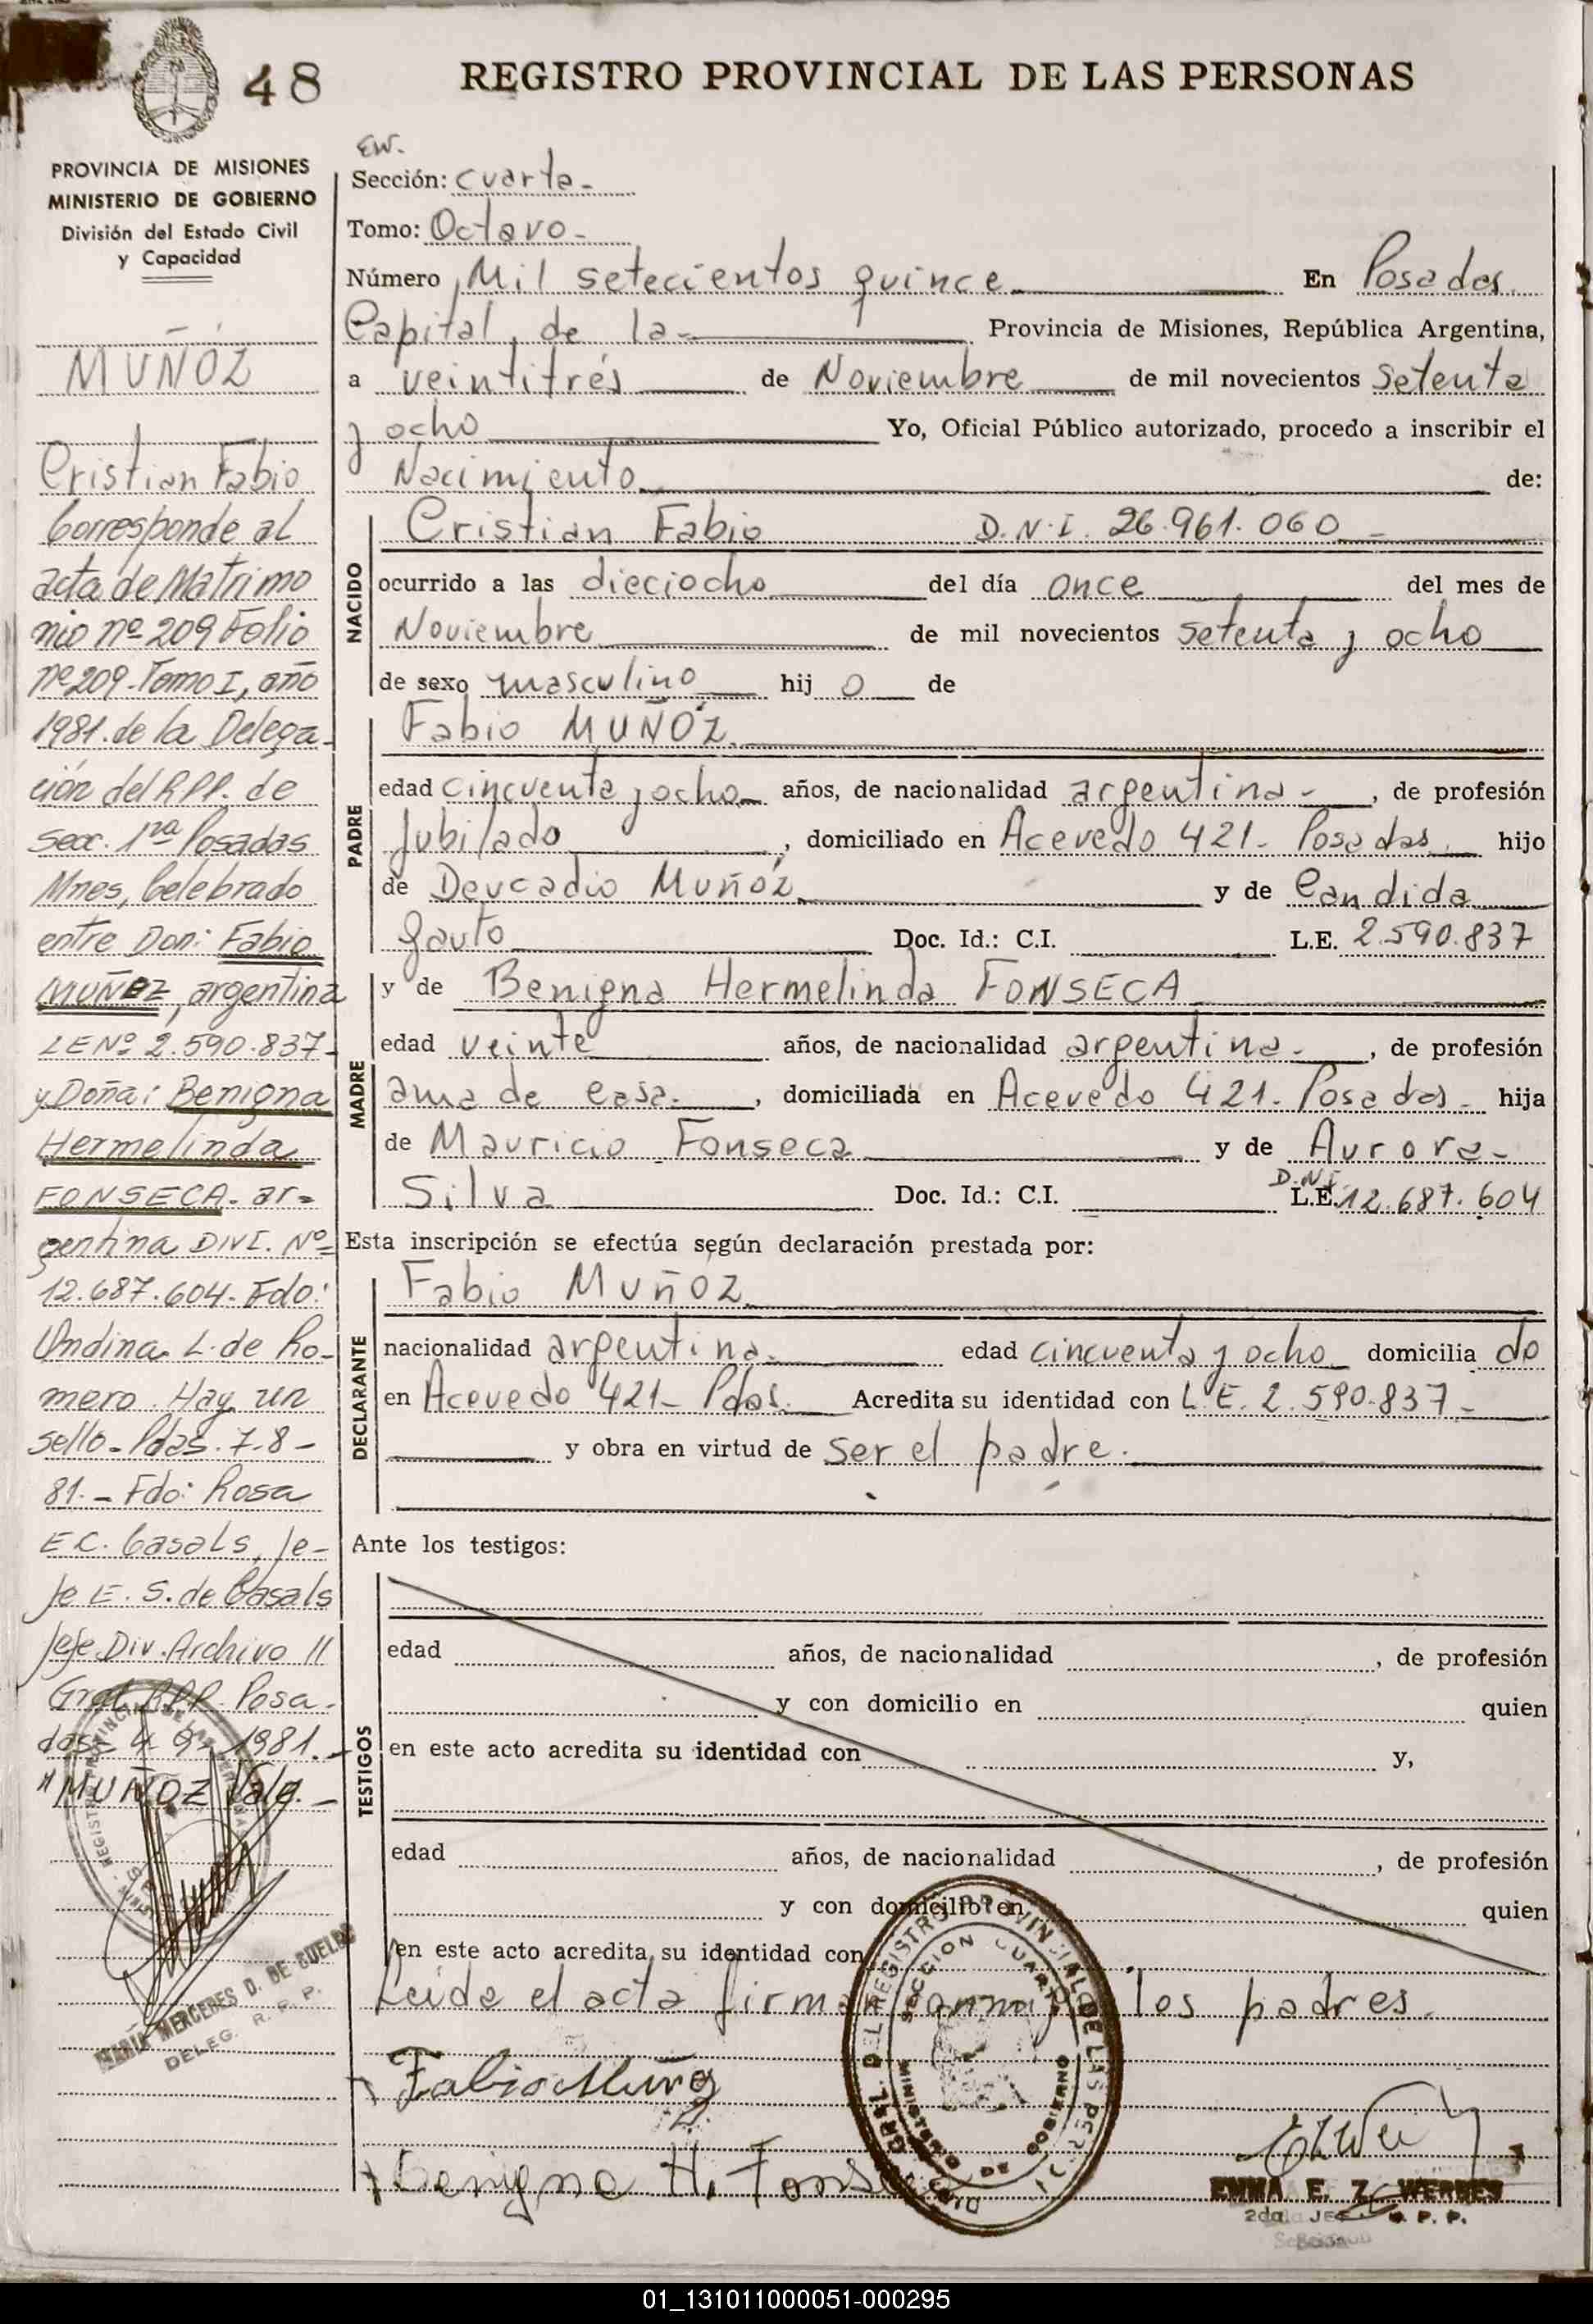 48
REGISTRO PROVINCIAL DE LAS PERSONAS
PROVINCIA DE MISIONES
MINISTERIO DE GOBIERNO
División del Estado Civil
y Capacidad
MUÑOZ
Cristian Fabio
Corresponde al
acta de Matrimo
nio nº 209 Folio
nº 209-Tomo I, año
1981. de la Delega-
ción del RPP. de
secc. 1ra Posadas
Mnes, Celebrado
entre Don: Fabio
MUÑOZ, argentina
LE Nº 2.590.837-
y Doña: Benigna
Hermelinda
FONSECA. ar=
gentina DNI. Nº
12.687.604- Fdo:
Undina L. de Ro-
mero. Hay un
sello- Pdas. 7-8-
81.- Fdo: Rosa
E.C. Casals, Je-
fe E. S. de Casals
Jefe Div. Archivo
Gral RPP. Posa-
das 1981.-
"MUÑOZ Vale.-
MARIA MERCEDES D. DE CUELHO
DELEG. R. P. P.
EW.
Sección: Cuarta-
Tomo: Octavo-
Número Mil setecientos quince En Posadas
Capital de la- Provincia de Misiones, República Argentina,
a veintitrés de Noviembre de mil novecientos setenta
y ocho Yo, Oficial Público autorizado, procedo a inscribir el
Nacimiento de:
NACIDO
Cristian Fabio D.N.I. 26.961.060-
ocurrido a las dieciocho del día once del mes de
Noviembre de mil novecientos setenta y ocho
de sexo masculino hij o de
PADRE
Fabio MUÑOZ.
edad cincuenta y ocho años, de nacionalidad argentina-, de profesión
Jubilado, domiciliado en Acevedo 421- Posadas hijo
de Deucadio Muñoz y de Candida
Gauto Doc. Id.: C.I. L.E. 2.590.837
MADRE
y de Benigna Hermelinda FONSECA
edad veinte años, de nacionalidad argentina-, de profesión
ama de casa., domiciliada en Acevedo 421- Posadas- hija
de Mauricio Fonseca y de Aurora-
D.N.I.
Silva Doc. Id.: C.I. L.E. 12.687.604
Esta inscripción se efectúa según declaración prestada por:
DECLARANTE
Fabio Muñoz
nacionalidad argentina. edad cincuenta y ocho domicilia do
en Acevedo 421- Pdas. Acredita su identidad con L.E. 2.590.837-
y obra en virtud de ser el padre.
Ante los testigos:
TESTIGOS
edad años, de nacionalidad , de profesión
y con domicilio en quien
en este acto acredita su identidad con y,
edad años, de nacionalidad , de profesión
y con domicilio en quien
en este acto acredita su identidad con
Leida el acta firman los padres.
Fabio Muñoz
Benigna H. Fonseca
GRAL. DEL REGISTRO PROVINCIAL DE LAS PER
SECCION CUARTA
MINISTERIO DE GOBIERNO
EMMA E. Z. WERBES
2da. JEFE R. P. P.
01_131011000051-000295